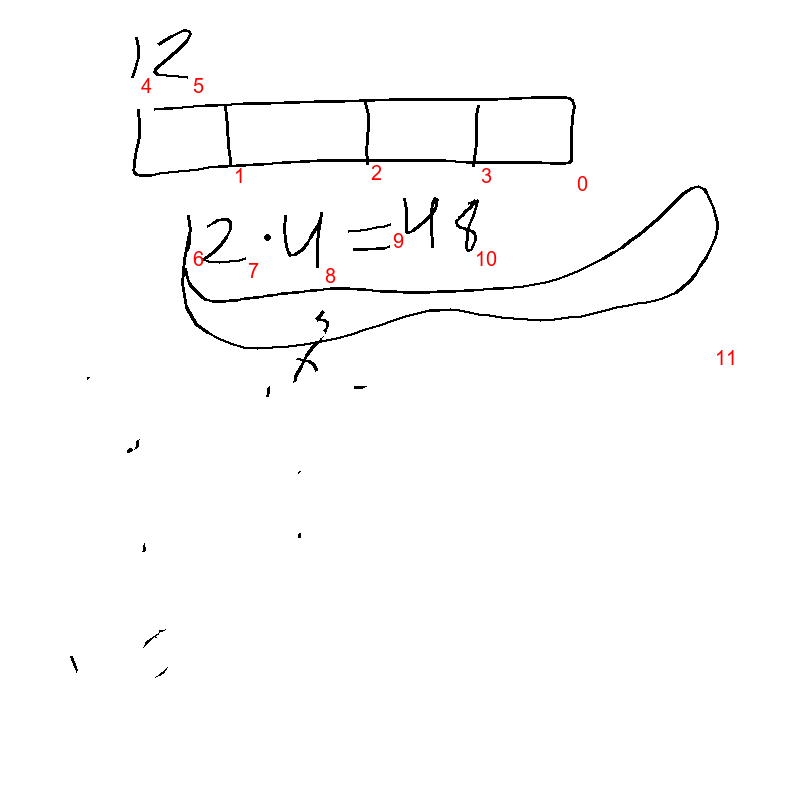 12
4 5
1 2 3 0
12 · 4 = 48
6 7 8 9 10
11